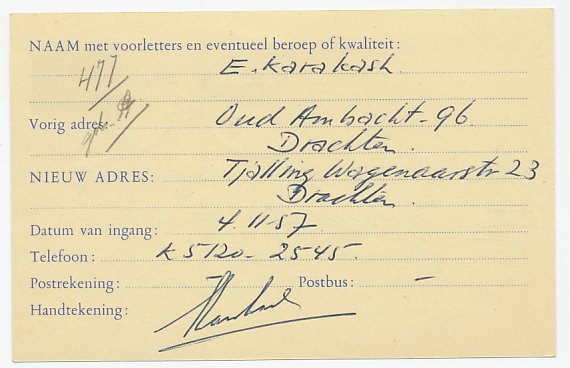 NAAM met voorletters en eventueel beroep of kwaliteit:
E. Karakash
477
Vorig adres: Oud Ambacht - 96
Drachten.
NIEUW ADRES: Tjalling Wagenaarstr 23
Drachten.
Datum van ingang: 4.11-57
Telefoon: K 5120- 2545.
Postrekening: Postbus: -
Handtekening: